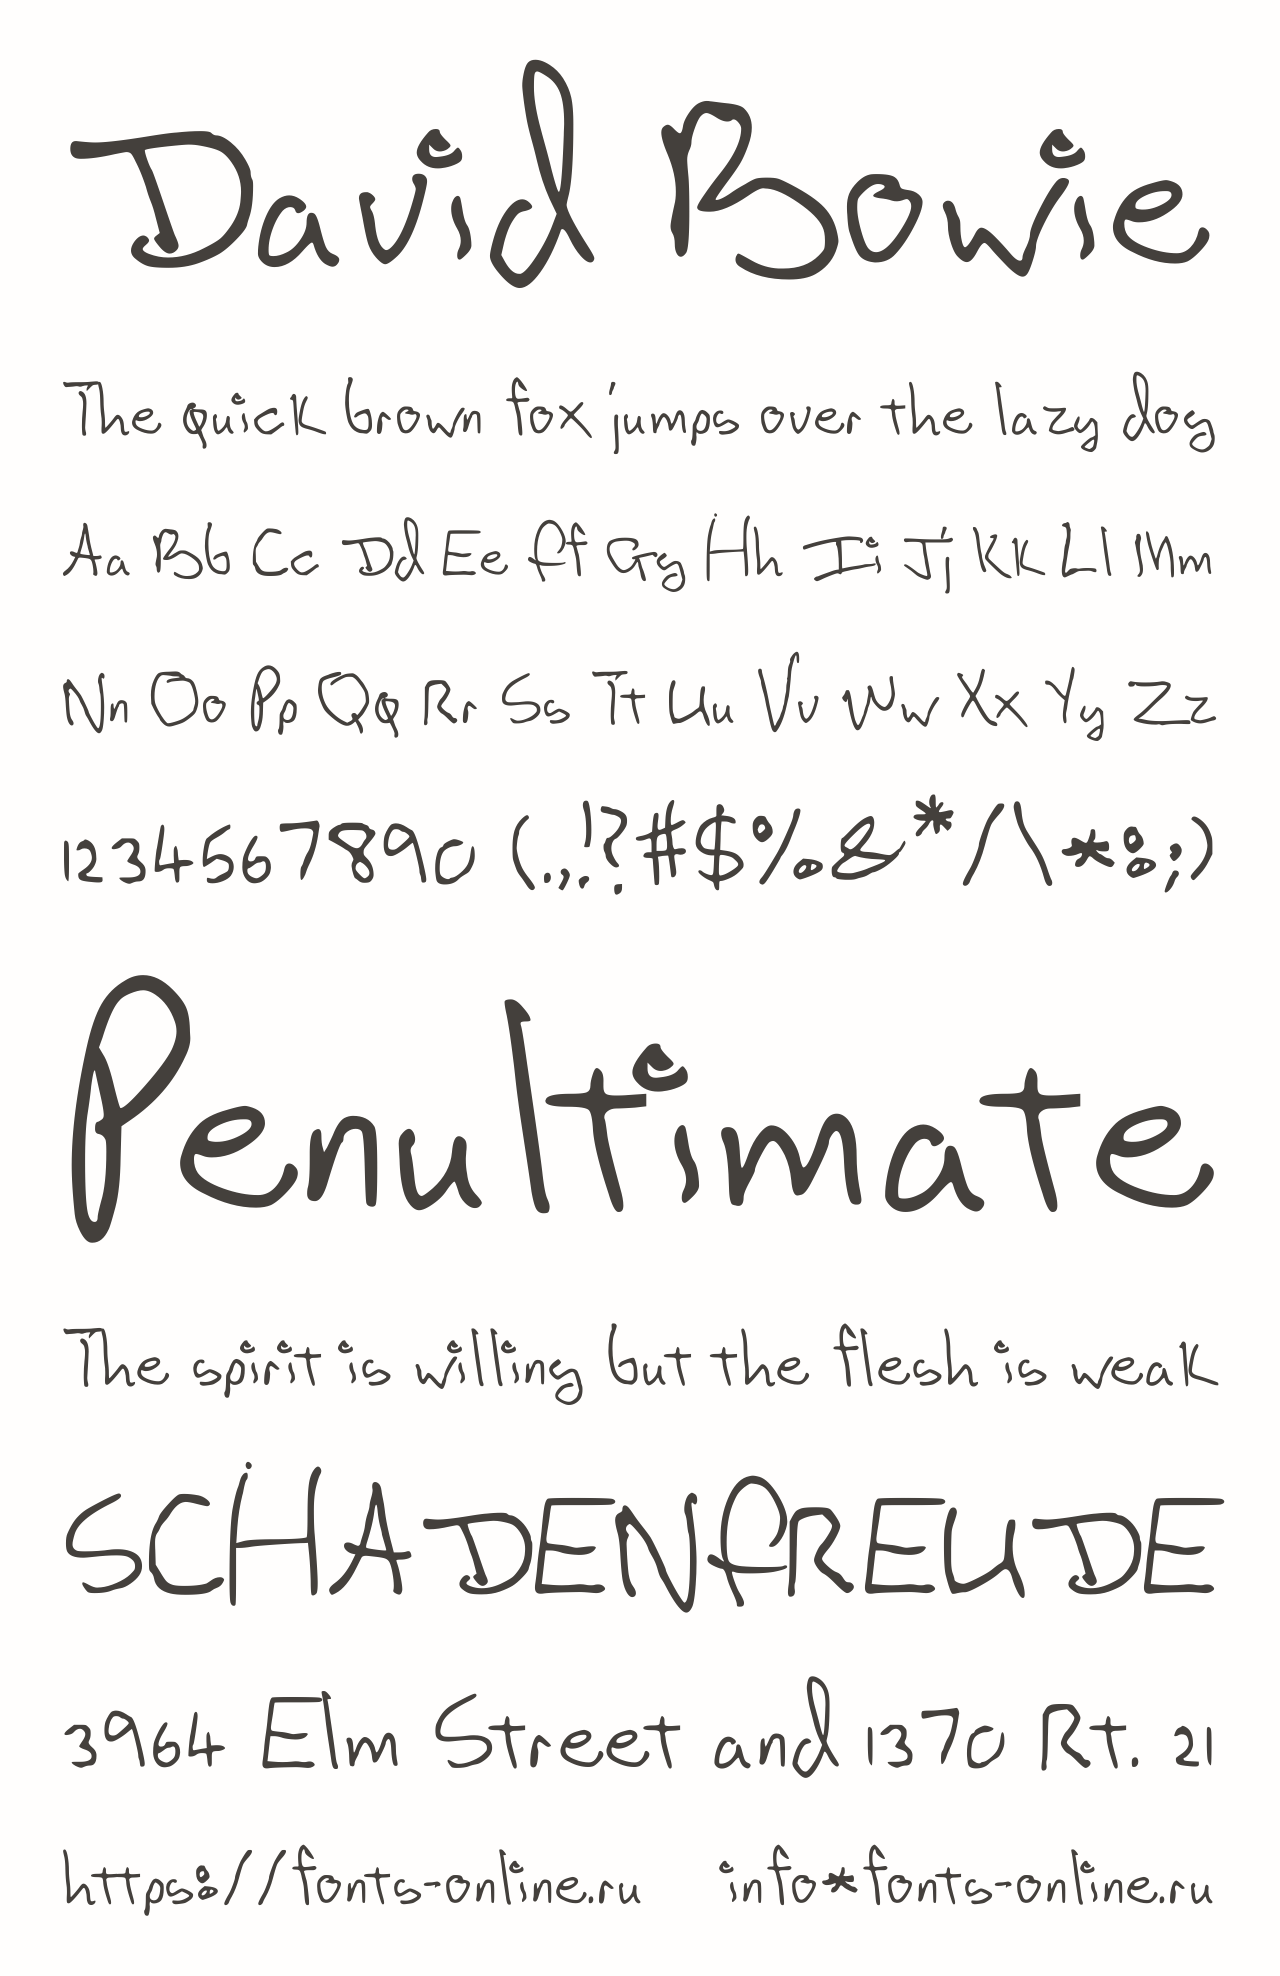 David Bowie
The quick brown fox jumps over the lazy dog
Aa Bb Cc Dd Ee Ff Gg Hh Ii Jj Kk Ll Mm
Nn Oo Pp Qq Rr Ss Tt Uu Vv Ww Xx Yy Zz
1234567890 (.,!?#$%&*/\*:;)
Penultimate
The spirit is willing but the flesh is weak
SCHADENFREUDE
3964 Elm Street and 1370 Rt. 21
https://fonts-online.ru info*fonts-online.ru